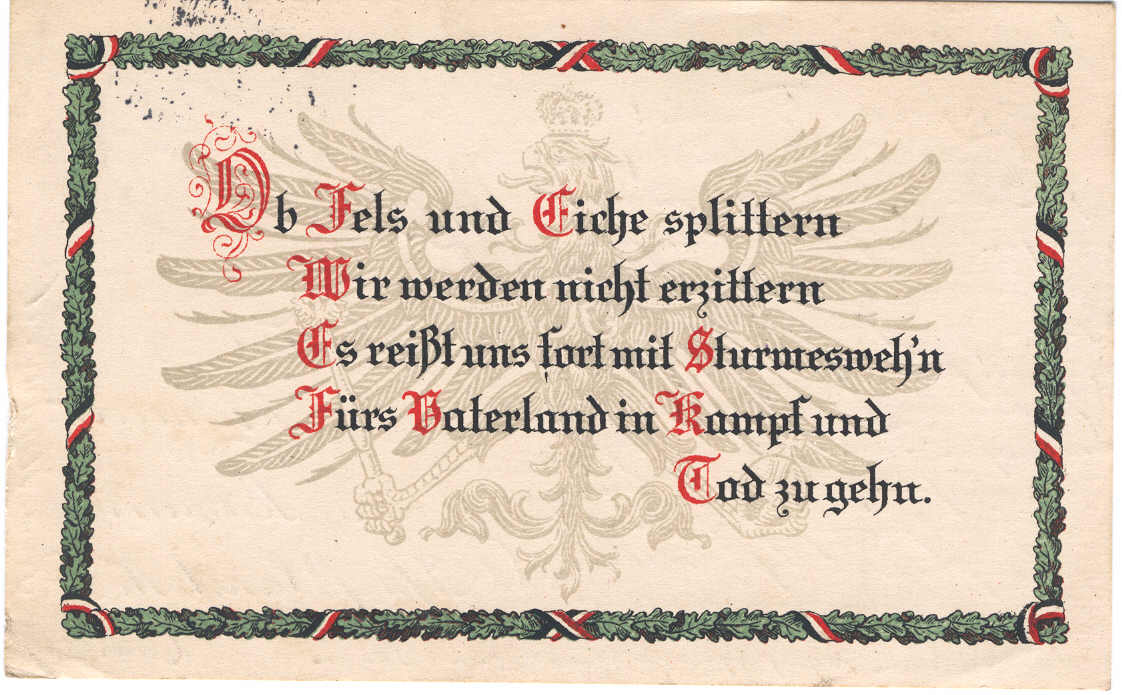 Ob Fels und Eiche splittern
Wir werden nicht erzittern
Es reißt uns fort mit Sturmesweh'n
Fürs Vaterland in Kampf und
Tod zu gehn.